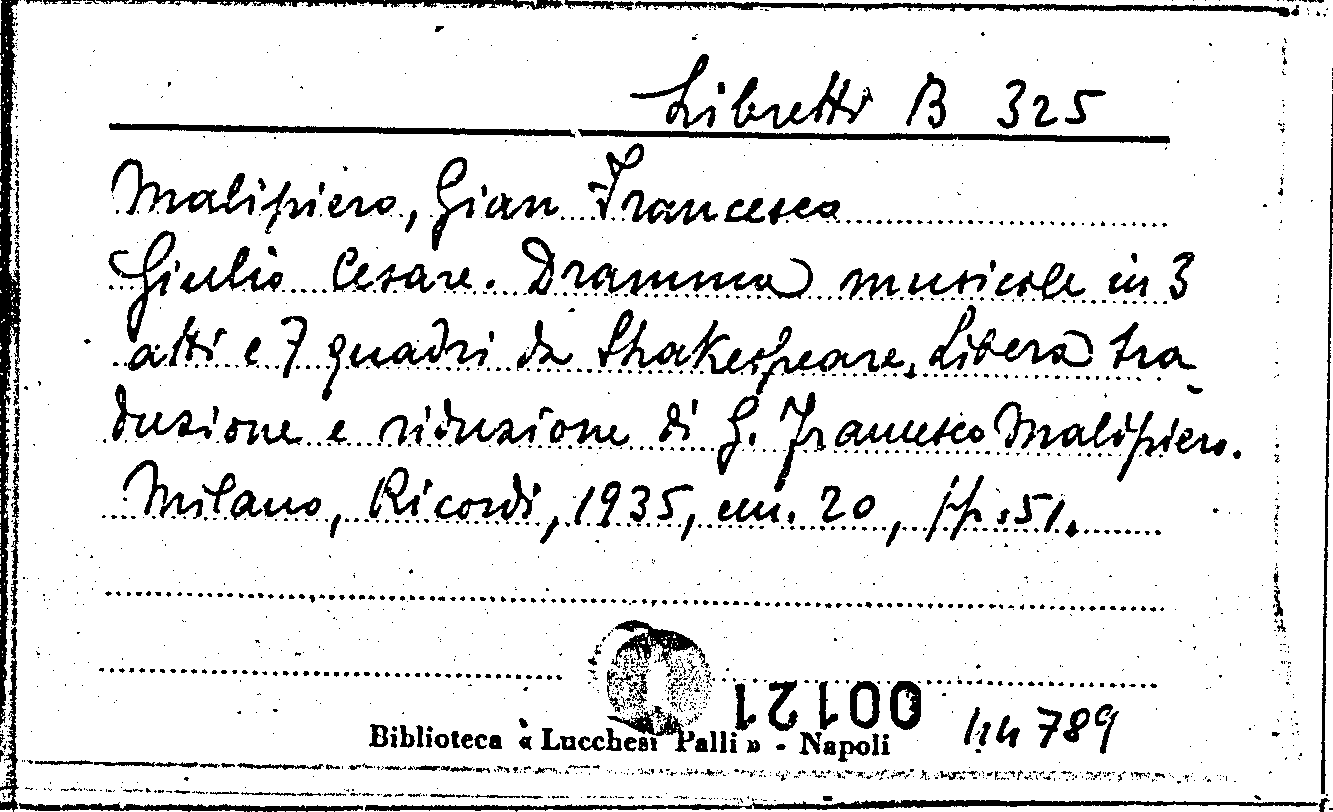 Libretti B 325
Malipiero, Gian Francesco
Giulio Cesare. Dramma musicale in 3
atti e 7 quadri da Shakespeare. Libera tra-
duzione e riduzione di G. Francesco Malipiero.
Milano, Ricordi, 1935, cm. 20, pp. 51.
00121
789
Biblioteca « Lucchesi Palli » - Napoli